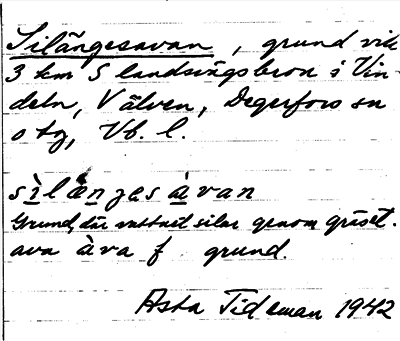 Silängesavan, grund vik
3 km S landsvägsbron i Vin-
deln, V älven, Degerfors sn
o tg, Vb. l.
sìlänzesàvan
Grund, där vattnet silar genom gräset.
ava àva f grund.
Asta Tideman 1942